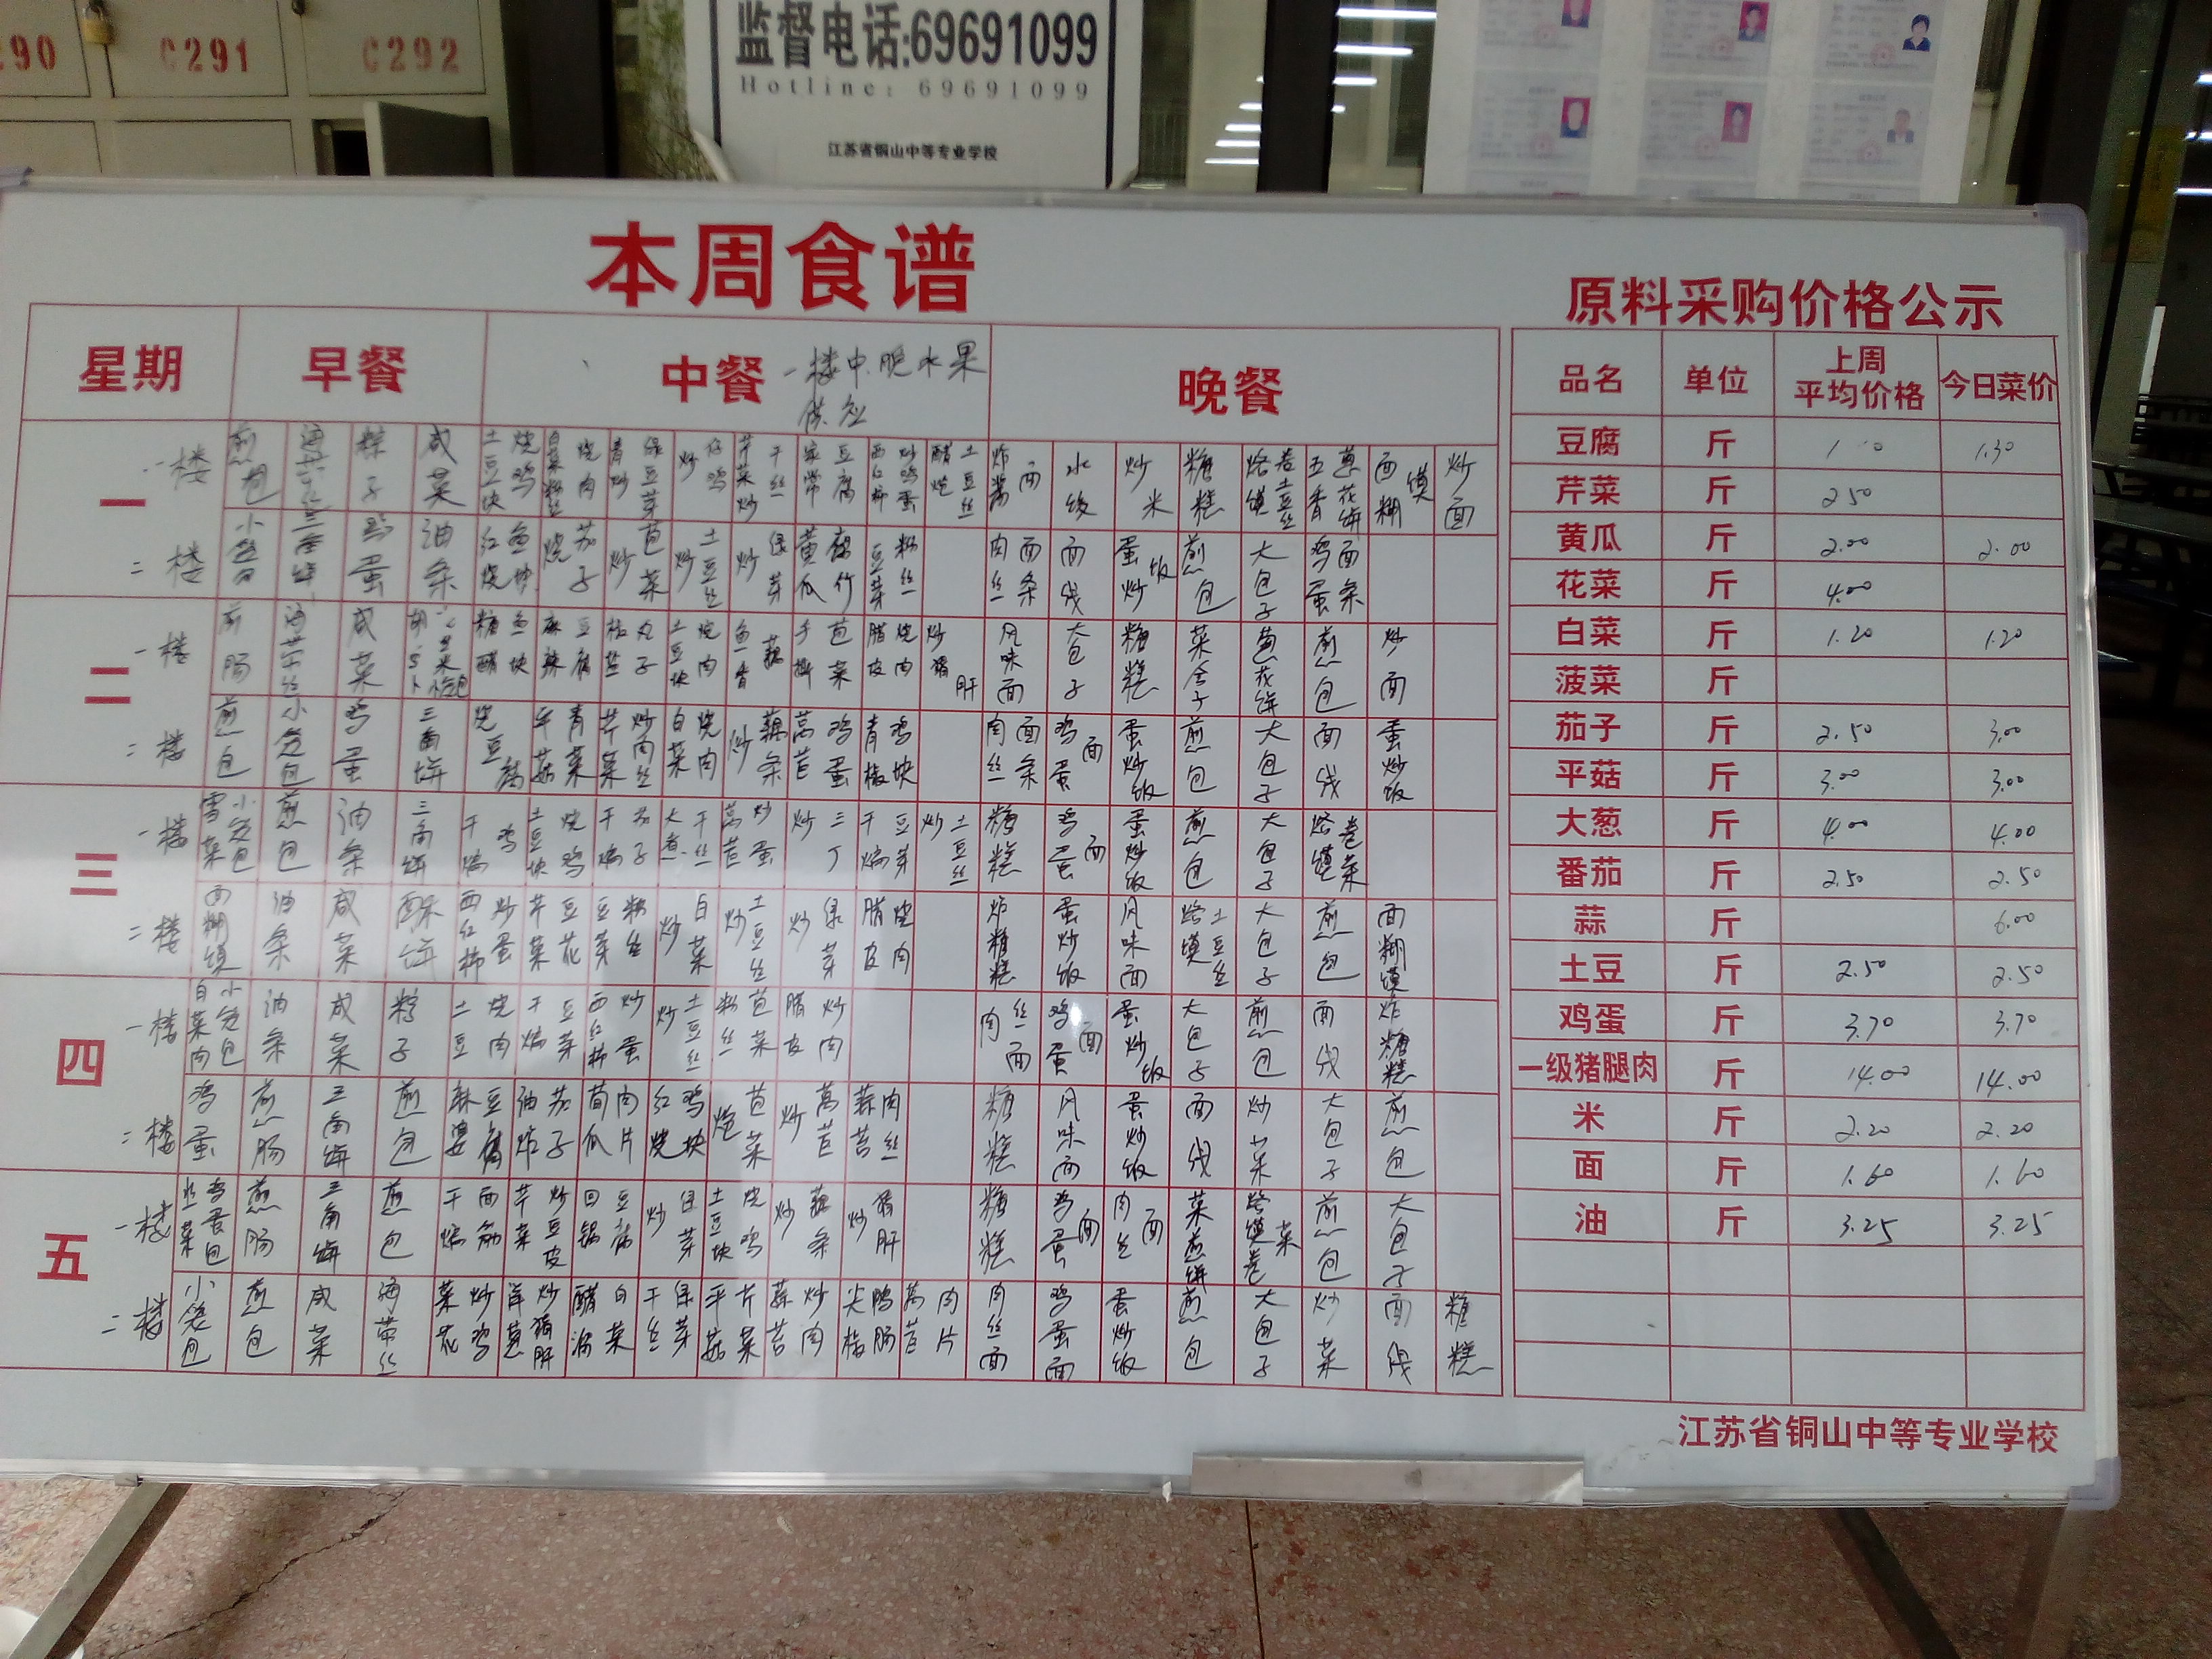 C290
C291
C292
监督电话:69691099
Hotline: 69691099
江苏省铜山中等专业学校
本周食谱
原料采购价格公示
星期 早餐 中餐 一楼中.晚水果供应 晚餐
品名 单位 上周平均价格 今日菜价
一
一楼 煎包 粽子 咸菜 土豆块烧鸡 白菜粉丝烧肉 青炒绿豆芽 炒仔鸡 芹菜炒干丝 家常豆腐 西红柿炒鸡蛋 醋炝土豆丝 炸酱面 水饺 炒米 糖糕 烙馍卷土豆丝 五香葱花饼 面糊馍 炒面
二楼 小笼包 三角饼 鸡蛋 油条 红烧鱼块 烧茄子 炒苞菜 炒土豆丝 炒绿芽 黄瓜腐竹 豆芽粉丝 肉丝面条 面线 蛋炒饭 煎包 大包子 鸡蛋面条
二
一楼 煎肠 海带丝 咸菜 糖醋鱼块 麻辣豆腐 椒盐丸子 土豆块烧肉 鱼香藕 手撕苞菜 腊皮烧肉 炒猪肝 风味面 大包子 糖糕 菜合子 葱花饼 煎包 炒面
二楼 煎包 小笼包 鸡蛋 三角饼 烧豆腐 平菇青菜 芹菜炒肉丝 白菜烧肉 炒藕条 莴苣鸡蛋 青椒鸡块 肉丝面条 鸡蛋面 蛋炒饭 煎包 大包子 面线 蛋炒饭
三
一楼 雪菜小笼包 煎包 油条 三角饼 干煸鸡 土豆块烧鸡 干煸茄子 大煮干丝 莴苣炒蛋 炒三丁 干煸豆芽 炒土豆丝 糖糕 鸡蛋面 蛋炒饭 煎包 大包子 烙馍卷菜
二楼 面糊馍 油条 咸菜 酥饼 西红柿炒蛋 芹菜豆花 豆芽粉丝 炒白菜 炒土豆丝 炒绿芽 腊皮烧肉 炸糖糕 蛋炒饭 风味面 烙馍土豆丝 大包子 煎包 面糊馍
四
一楼 白菜肉小笼包 油条 咸菜 粽子 土豆烧肉 干煸豆芽 西红柿炒蛋 炒土豆丝 粉丝苞菜 腊皮炒肉 肉丝面 鸡蛋面 蛋炒饭 大包子 煎包 面线 炸糖糕
二楼 鸡蛋 煎肠 三角饼 煎包 麻婆豆腐 油炸茄子 黄瓜肉片 红烧鸡块 炝苞菜 炒莴苣 蒜苔肉丝 糖糕 风味面 蛋炒饭 面线 炒菜 大包子 煎包
五
一楼 韭菜鸡蛋包 煎肠 三角饼 煎包 干煸面筋 芹菜炒豆皮 回锅豆腐 炒绿芽 土豆块烧鸡 炒藕条 炒猪肝 糖糕 鸡蛋面 肉丝面 菜煎饼 烙馍卷菜 煎包 大包子
二楼 小笼包 煎包 咸菜 海带丝 菜花炒鸡 洋葱炒猪肝 醋溜白菜 干丝绿芽 平菇片菜 蒜苔炒肉 尖椒鸭肠 莴苣肉片 肉丝面 鸡蛋面 蛋炒饭 煎包 大包子 炒菜 面线 糖糕
豆腐 斤 1.30
芹菜 斤 2.50
黄瓜 斤 2.00 2.00
花菜 斤 4.00
白菜 斤 1.20 1.20
菠菜 斤
茄子 斤 2.50 3.00
平菇 斤 3.00 3.00
大葱 斤 4.00 4.00
番茄 斤 2.50 2.50
蒜 斤 6.00
土豆 斤 2.50 2.50
鸡蛋 斤 3.70 3.70
一级猪腿肉 斤 14.00 14.00
米 斤 2.20 2.20
面 斤 1.60 1.60
油 斤 3.25 3.25
江苏省铜山中等专业学校